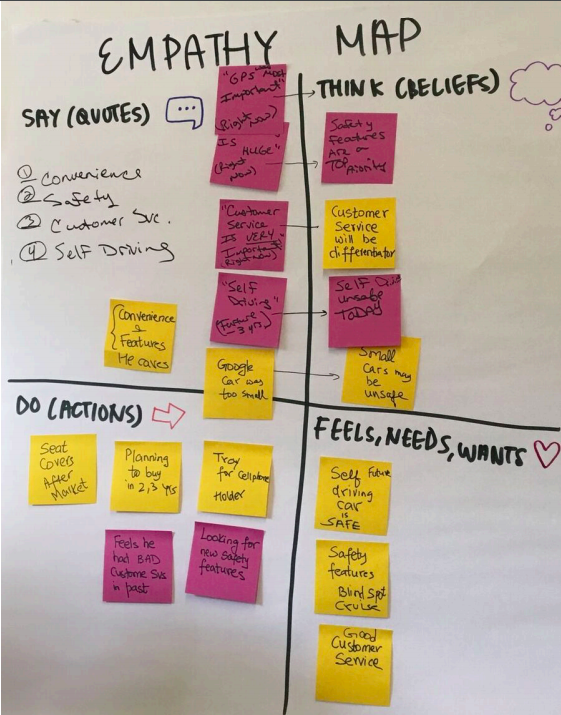 EMPATHY MAP
SAY (QUOTES)
① Convenience
② Safety
③ Customer Svc.
④ Self Driving
"GPS Most
Important"
(Right Now)
IS
HUGE"
(Right
Now)
"Customer
Service
Is VERY
Important"
Right Now)
"Self
Driving"
(Future
3 yrs)
Convenience
&
Features
He caves
Google
Car was
too small
THINK (BELIEFS)
Safety
Features
Are
TOP
Priority
Customer
Service
will be
differentiator
Self
unsafe
TODAY
Small
Cars may
be
unsafe
DO (ACTIONS)
Seat
Covers
After
Market
Planning
to buy
in 2,3 yrs
Tray
for Cellphone
Holder
Feels he
had BAD
Custome Svs
in past
Looking for
new Safety
features
FEELS, NEEDS, WANTS
Self Future
driving
car
is
SAFE
Safety
features
Blind Spt
Cruise
Good
Customer
Service